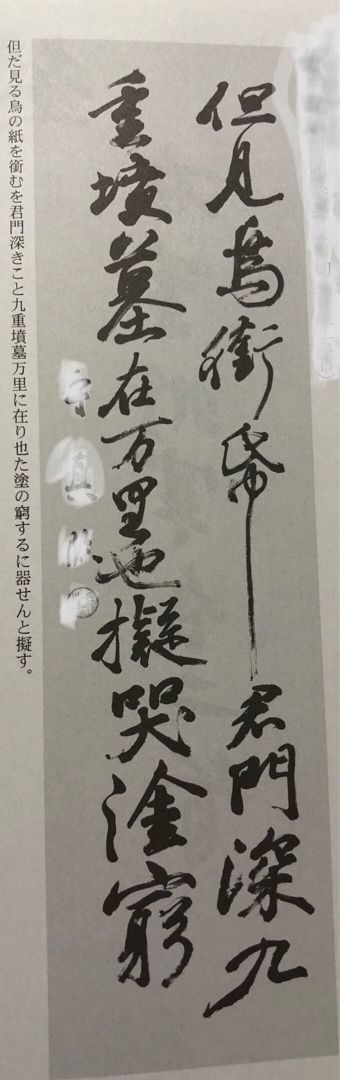 但見烏銜帋君門深九
重墳墓在万里也擬哭塗窮
但だ見る烏の紙を銜むを君門深きこと九重墳墓万里に在り也た塗の窮するに器せんと擬す。